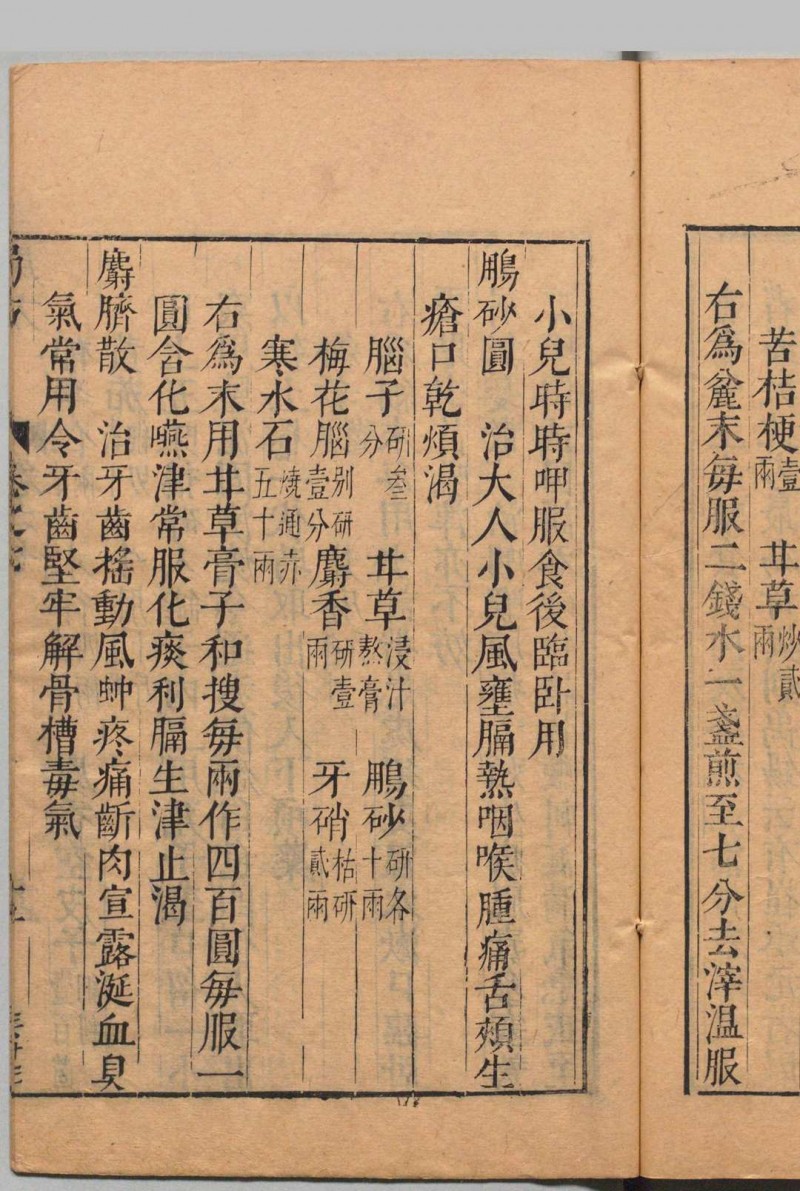 苦桔梗壹兩　甘草炒貳兩
右爲麄末每服二錢水一盞煎至七分去滓温服
小兒時時呷服食後臨卧用
鵬砂圓　治大人小兒風壅膈熱咽喉腫痛舌頰生
瘡口乾煩渴
腦子研叁分　甘草浸汁熬膏　鵬砂研各十兩
梅花腦别研壹分　麝香研壹兩　牙硝枯研貳兩
寒水石燒通赤五十兩
右爲末用甘草膏子和搜每兩作四百圓每服一
圓含化嚥津常服化痰利膈生津止渴
麝臍散　治牙齒摇動風蚛疼痛齗肉宣露涎血臭
氣常用令牙齒堅牢解骨槽毒氣